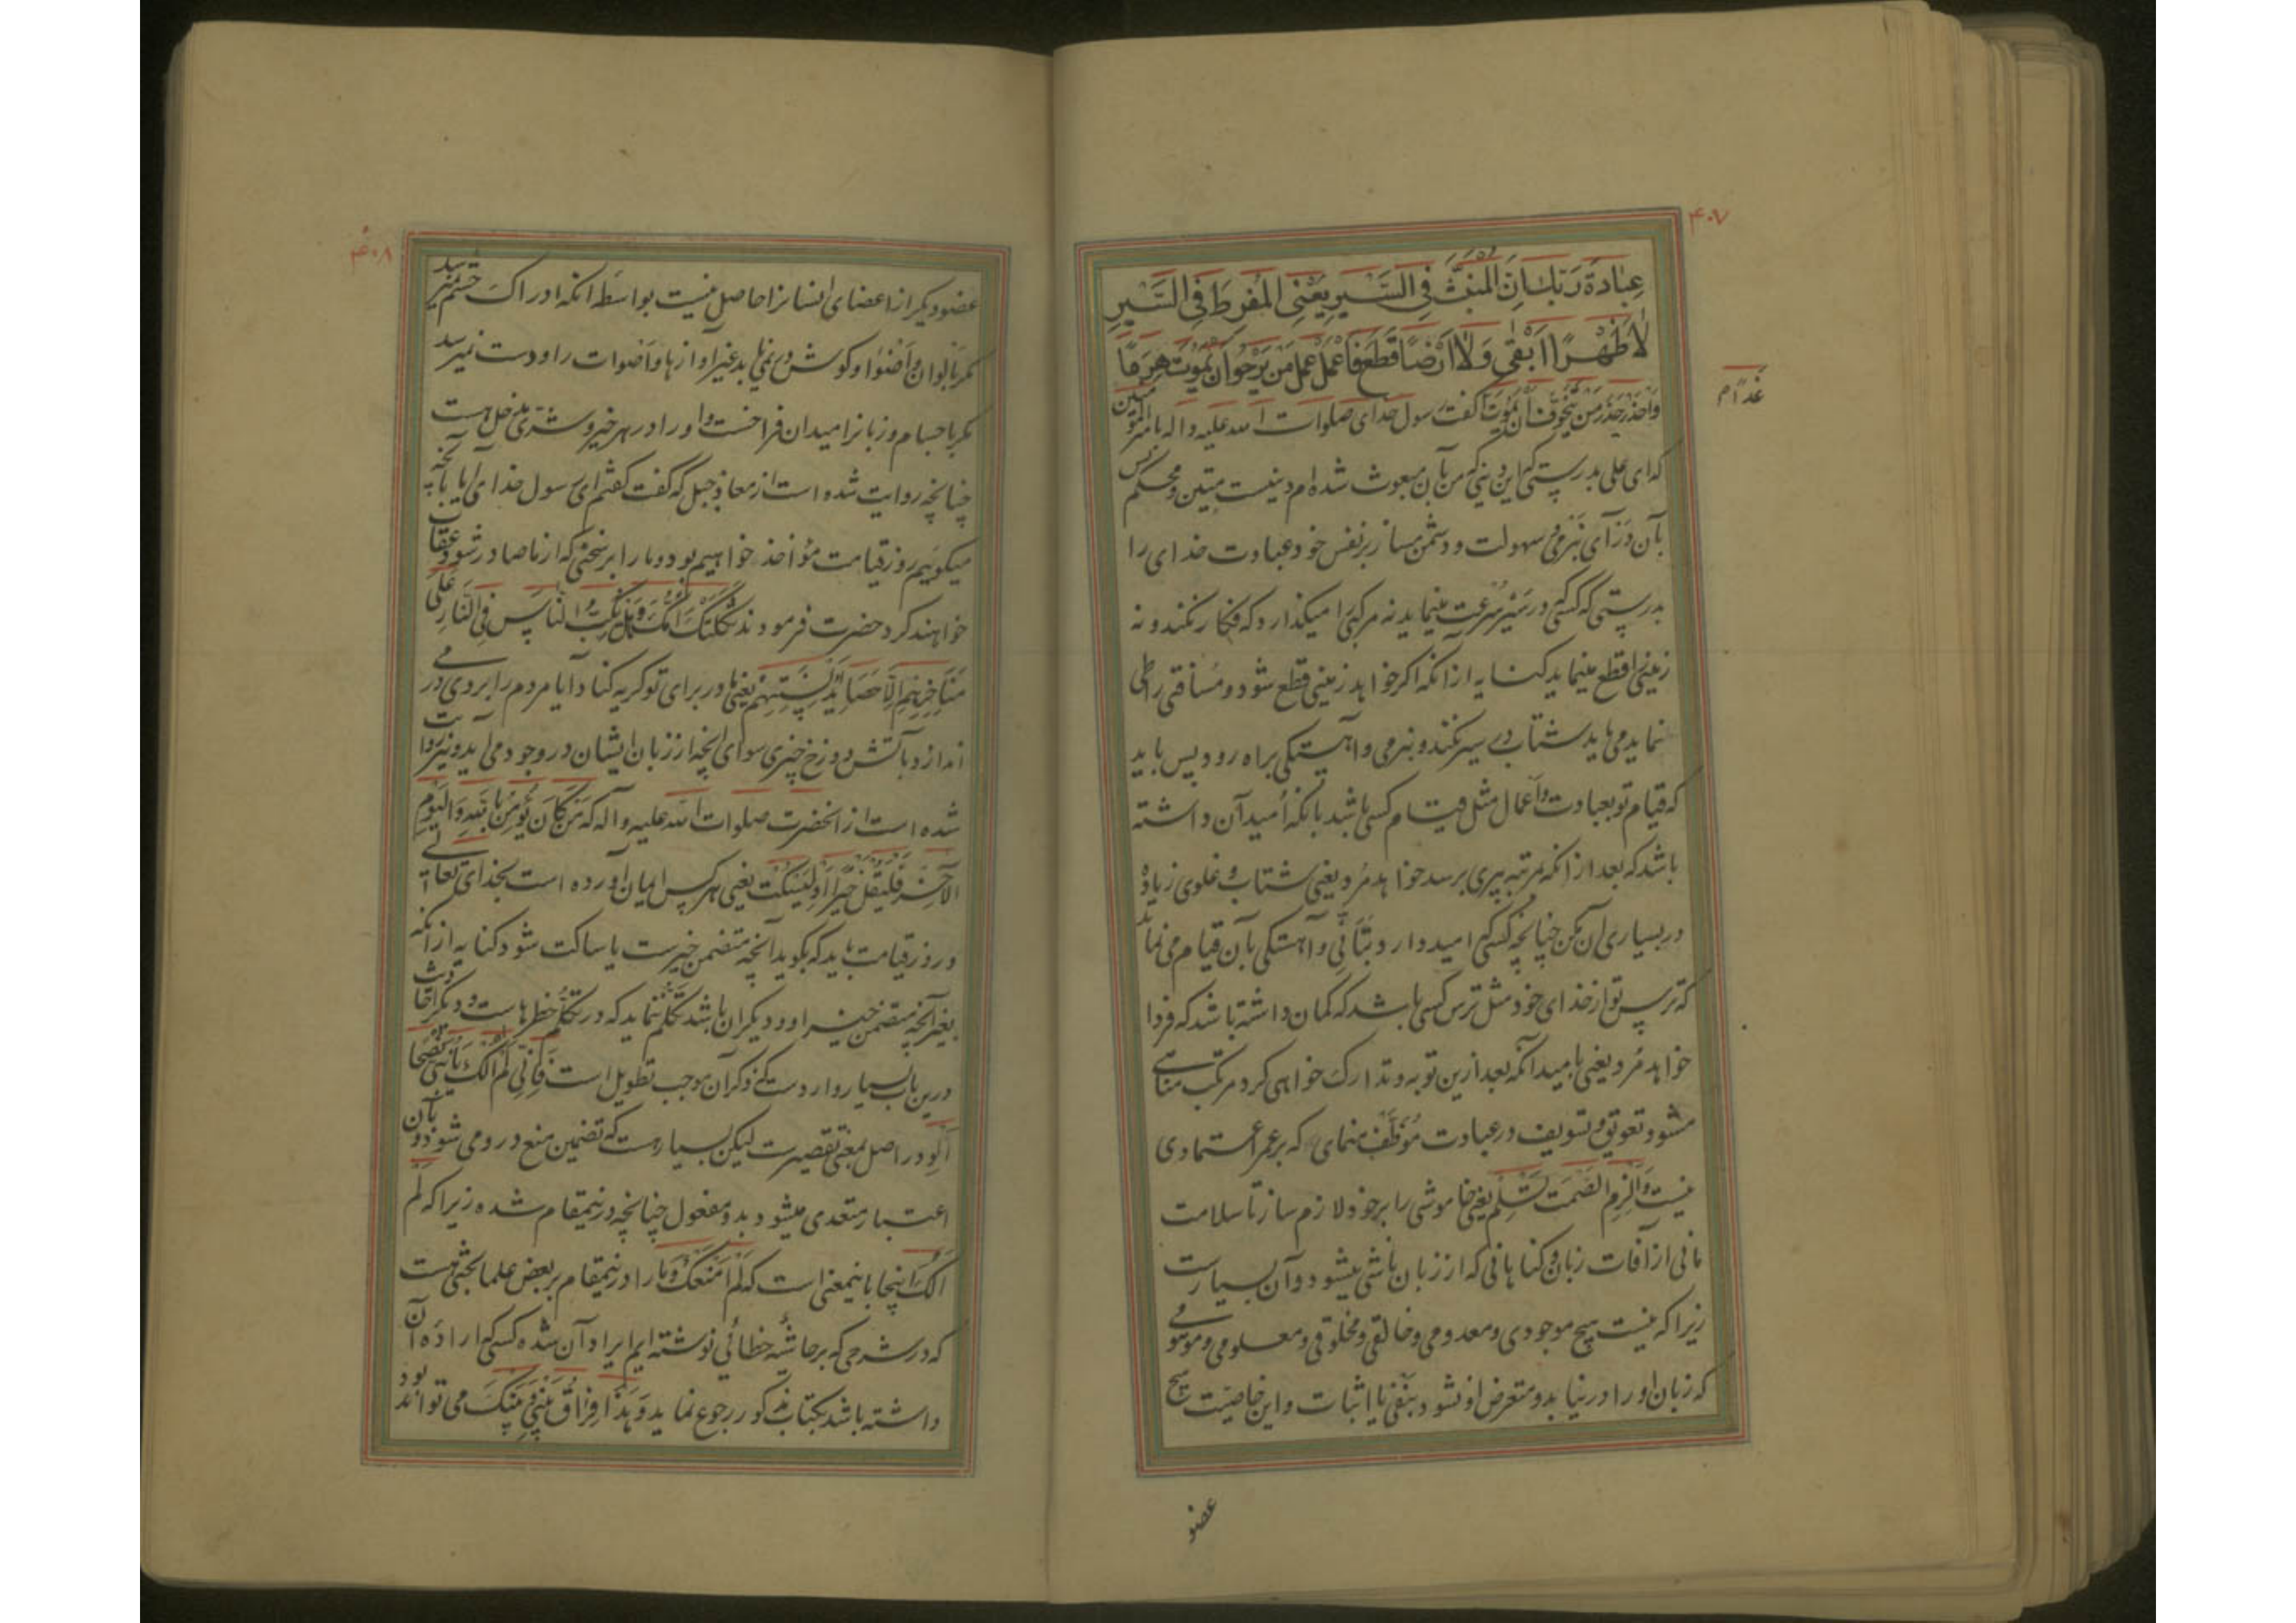 ۴۰۷
عِبَادَةَ رَبِّكَ فَاِنَّ المُنبَتَّ فِي السَّيرِ يَعْنِي المُفرِطَ فِي السَّيرِ
لَا ظَهْرًا اَبْقٰى وَلَا اَرْضًا قَطَعَ فَاعْمَلْ عَمَلَ مَن يَرْجُوا اَن يَمُوتَ هَرِمًا
وَاحْذَرْ حَذَرَ مَن يَتَخَوَّفُ اَن يَمُوتَ گفت رسول خدای صلوات الله علیه واله بامیر المومنین
غَدًا م
که ای علی بدرستی که این دینی که من بآن مبعوث شده ام دینیست متین و محکم پس
بآن در آی بنرمی و سهولت و دشمن مساز بر نفس خود عبادت خدای را
بدرستی که کسی که در سیر سرعت مینماید نه مرکبی را میکذارد که فکار نکند و نه
زمینی را قطع مینماید کنایه از انکه اکر خواهد زمینی قطع شود و مسافتی را طی
نماید می باید شتاب در سیر نکند و بنرمی و آهستکی براه رود پس باید
که قیام تو بعبادت و اعمال مثل قیام کسی باشد بانکه امید آن داشته
باشد که بعد از انکه بمرتبه پیری برسد خواهد مرد یعنی شتاب و غلوی زیاده
در بسیاری آن مکن چنانچه کسی که امید دارد بتأنی و آهستکی بآن قیام می نماید
که ترس تو از خدای خود مثل ترس کسی باشد که کمان داشته باشد که فردا
خواهد مرد یعنی بامید آنکه بعد ازین توبه و تدارک خواهی کرد مرتکب مناهی
مشو و تعویق و تسویف در عبادت موظف منمای که بر عمر اعتمادی
نیست وَالْزِمِ الصَّمْتَ تَسْلَم یعنی خاموشی را بر خود لازم ساز تا سلامت
مانی از آفات زبان و کناهانی که از زبان ناشی میشود و آن بسیارست
زیرا که نیست هیچ موجودی و معدومی و خالقی و مخلوقی و معلومی و موهومی
که زبان او را در نیابد و متعرض او نشود بنفی یا اثبات و این خاصیت هیچ
عضو
۴۰۸
عضو دیکر از اعضای انسانرا حاصل نیست بواسطه انکه ادراک چشم نمیرسد
مکر بالوان و اضوا و کوش در نمی یابد غیر آوازها و اصوات را و دست نمیرسد
مکر باجسام و زبانرا میدان فراخست و او را در هر خیر و شری مدخل هست
چنانچه روایت شده است از معاذ جبل که گفت کفتم ای رسول خدا آیا بآنچه
میکوییم روز قیامت مؤاخذ خواهیم بود و ما را بر سخنی که از ما صادر شود عقاب
خواهند کرد حضرت فرمودند ثَكِلَتْكَ اُمُّكَ وَهَل يَكُبُّ النَّاسَ فِي النَّارِ عَلَى
مَنَاخِرِهِم اِلَّا حَصَايِدُ اَلْسِنَتِهِمْ یعنی مادر برای تو کریه کناد آیا مردم را بر روی در می
اندازد بآتش دوزخ چیزی سوای انچه از زبان ایشان در وجود می اید و نیز روایت
شده است از انحضرت صلوات الله علیه و آله که مَن كَانَ يُؤمِنُ بِاللّهِ وَالْيَوْمِ
الْآخِرِ فَلْيَقُل خَيْرًا اَوْ لِيَسْكُتْ یعنی هر کس ایمان آورده است بخدای تعالی
و روز قیامت باید که بکوید آنچه متضمن خیرست یا ساکت شود کنایه از انکه
بغیر آنچه متضمن خیر او و دیکران باشد تکلم ننماید که در تکلم خطرهاست و دیکر احادیث
درین باب بسیار وارد است که ذکر آن موجب تطویل است فَاِنِّي لَم آلُكَ يَا بُنَيَّ نُصْحًا
اَلو در اصل بمعنی تقصیرست لیکن بسیار هست که تضمین منع درو می شود و بآن
اعتبار متعدی میشود بدو مفعول چنانچه درینمقام شده زیرا که لَم
آلُكَ اینجا باینمعنی است که لَم اَمْنَعْكَ و ما را درینمقام بر بعض علما بحثی هست
که در شرحی که بر حاشیه خطائی نوشته ایم ایراد آن شده کسی که اراده آن
داشته باشد بکتاب مذکور رجوع نماید وَهَذَا فِرَاقُ بَيْنِي وَبَيْنِكَ می تواند بود